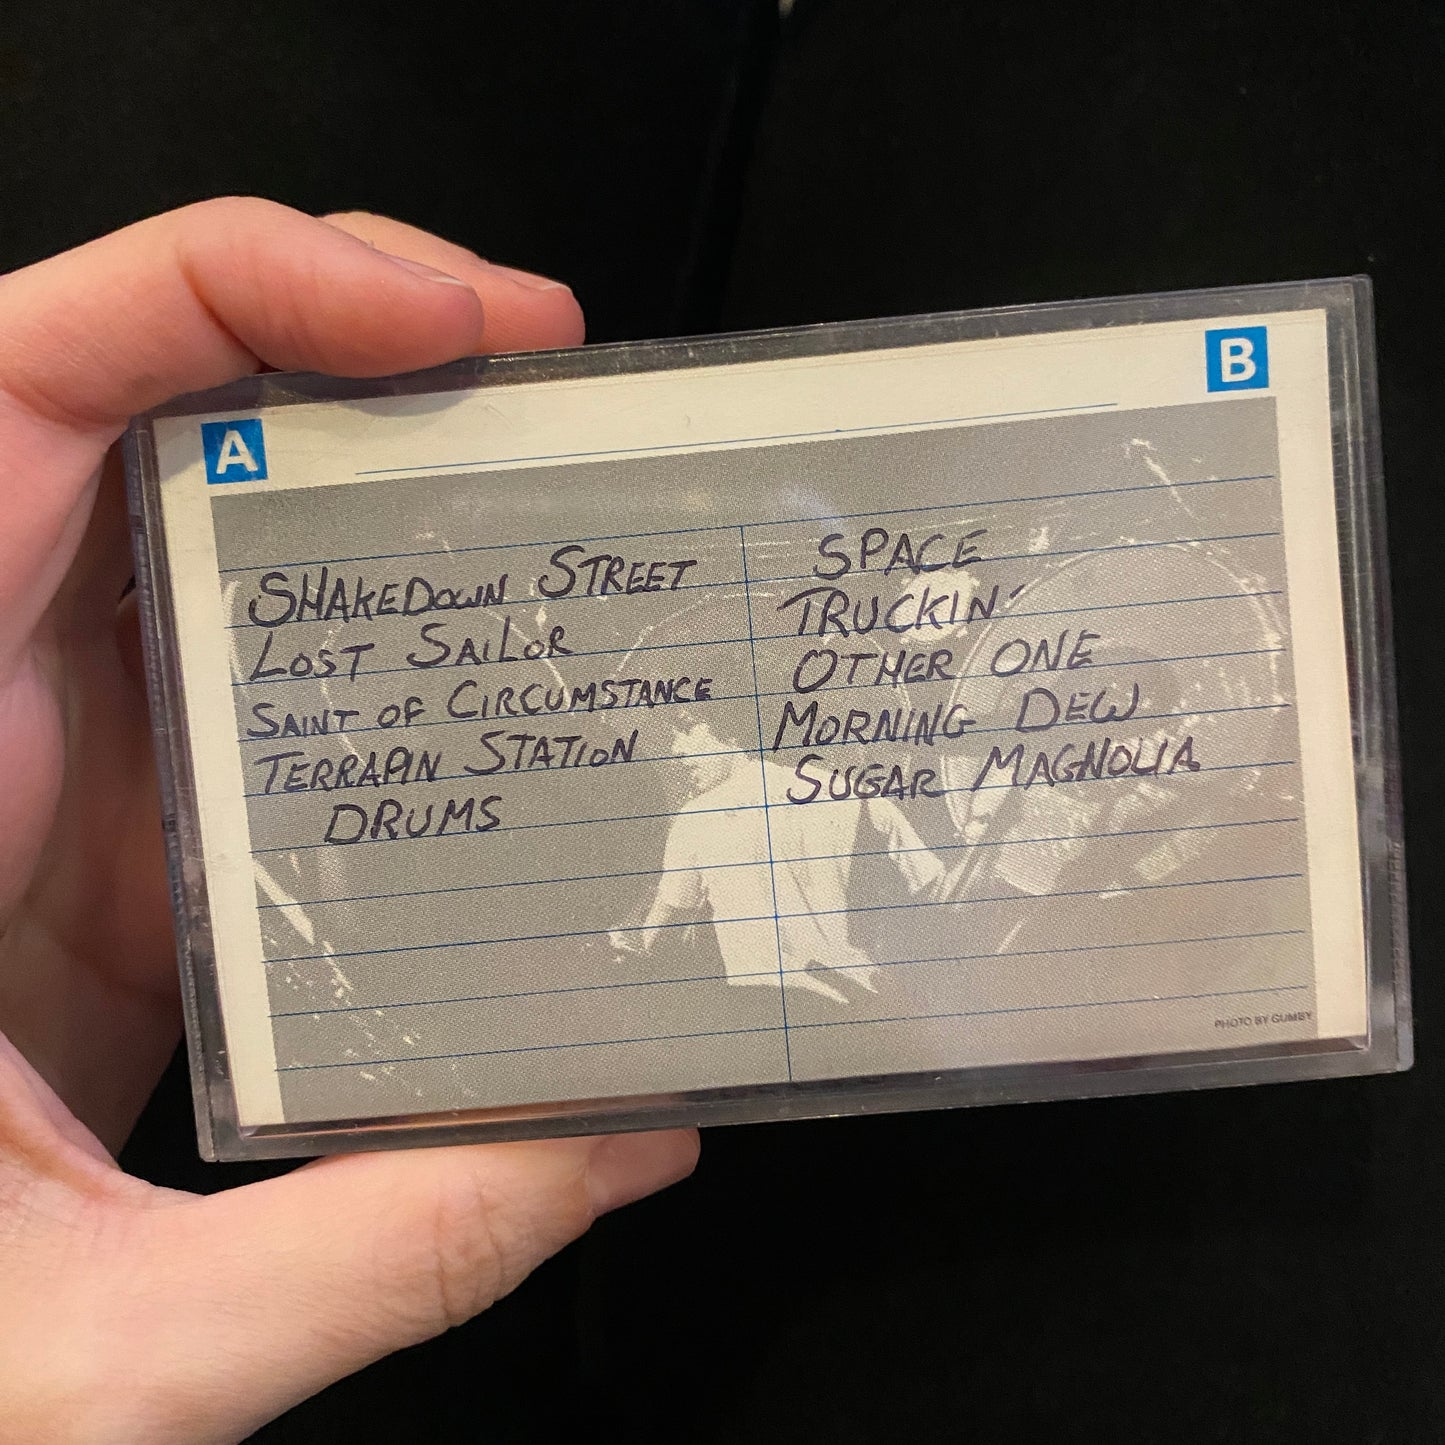 A
B
SHAKEDOWN STREET
LOST SAILOR
SAINT OF CIRCUMSTANCE
TERRAPIN STATION
DRUMS
SPACE
TRUCKIN'
OTHER ONE
MORNING DEW
SUGAR MAGNOLIA
PHOTO BY GUMBY